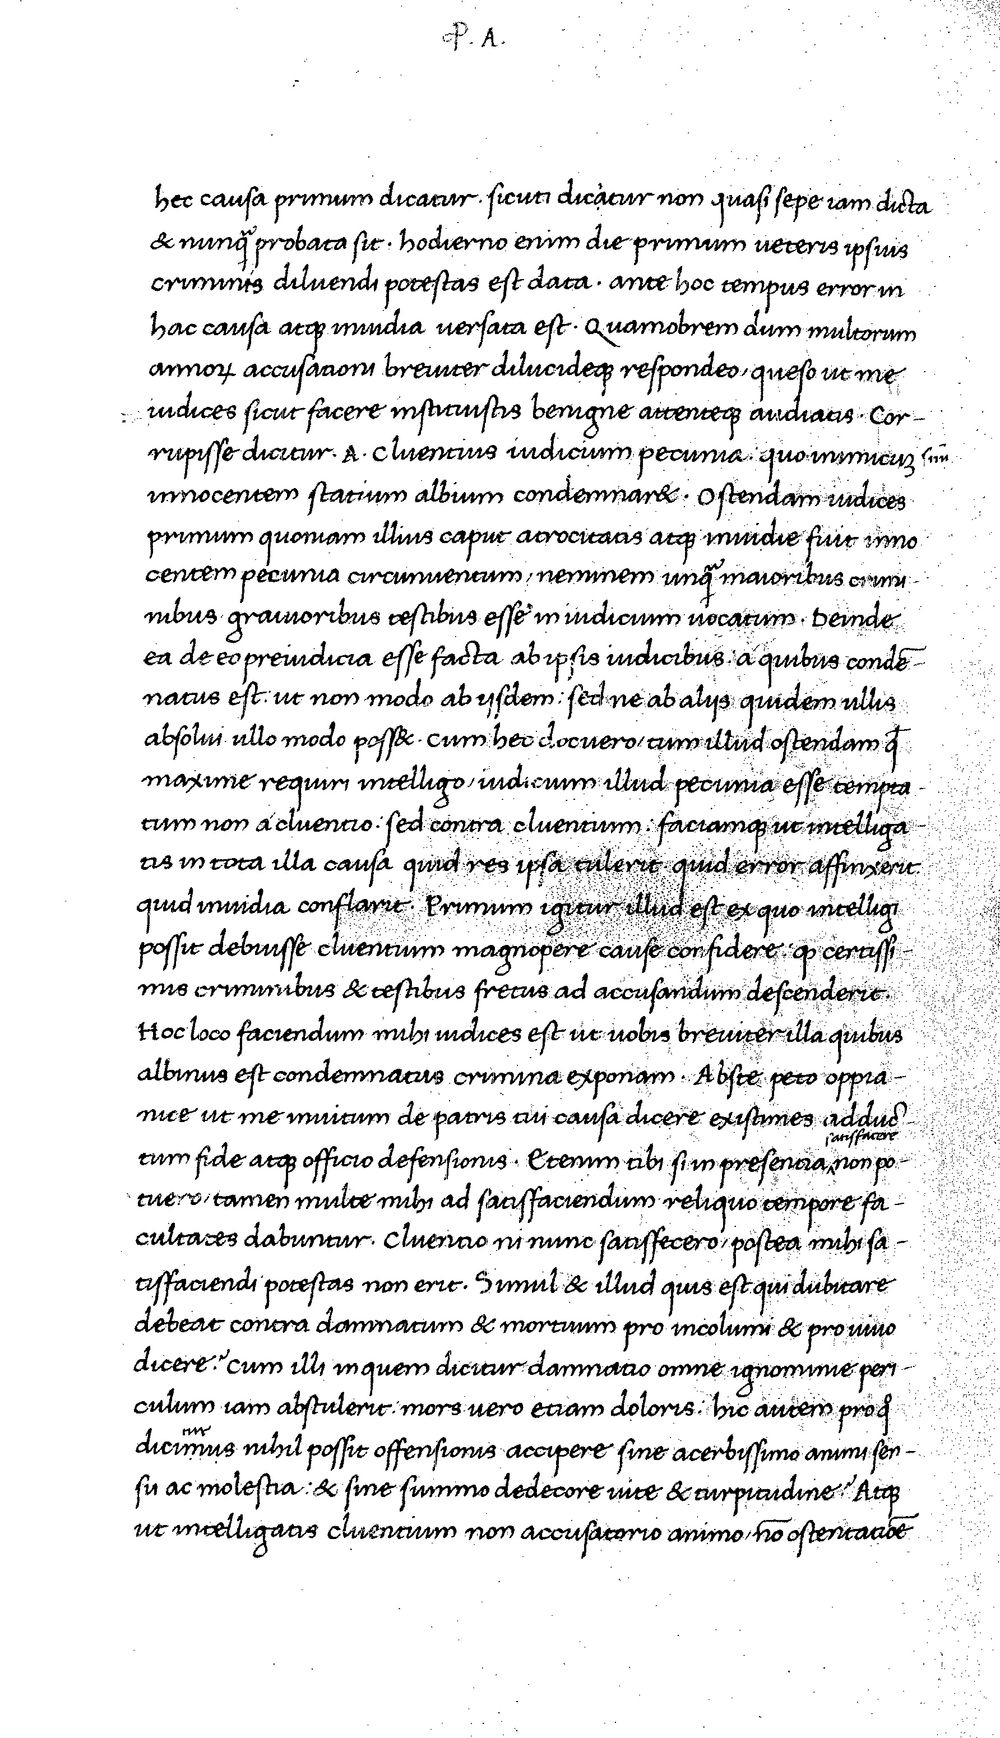 P. A.
hec causa primum dicatur. sicuti dicatur non quasi sepe iam dicta
& nunq̃ probata sit. hodierno enim die primum ueteris ipsius
criminis diluendi potestas est data. ante hoc tempus error in
hac causa atq; inuidia uersata est. Quamobrem dum multorum
annoꝝ accusationi breuiter dilucideq; respondeo, queso ut me
iudices sicut facere instituistis benigne attenteq; audiatis. Cor-
rupisse dicitur. A. Cluentius iudicium pecunia: quo inimicuꝫ suũ
innocentem statium albium condemnar&. Ostendam iudices
primum quoniam illius caput atrocitatis atq; inuidie fuit inno
centem pecunia circunuentum, neminem unq̃ maioribus crimi-
nibus grauioribus testibus esse in iudicium uocatum. Deinde
ea de eo preiudicia esse facta ab ipsis iudicibus: a quibus condẽ-
natus est: ut non modo ab ijsdem: sed ne ab alijs quidem ullis
absolui ullo modo poss&. Cum hec docuero, tum illud ostendam ꝙ
maxime requiri intelligo, iudicium illud pecunia esse tempta-
tum non a cluentio: sed contra cluentium: faciamq; ut intelliga-
tis in tota illa causa quid res ipsa tulerit quid error affinxerit
quid inuidia conflarit. Primum igitur illud est ex quo intelligi
possit debuisse cluentium magnopere cause confidere: ꝙ certissi-
mis criminibus & testibus fretus ad accusandum descenderit.
Hoc loco faciendum mihi iudices est ut uobis breuiter illa quibus
albinus est condemnatus crimina exponam. Abste peto oppia-
nice ut me inuitum de patris tui causa dicere existimes adduc-
satisfacere
tum fide atq; officio defensionis. Etenim tibi si in presentia non po-
tuero, tamen multe mihi ad satisfaciendum reliquo tempore fa-
cultates dabuntur. Cluentio ni nunc satisfecero, postea mihi sa-
tisfaciendi potestas non erit. Simul & illud quis est qui dubitare
debeat contra damnatum & mortuum pro incolumi & pro uiuo
dicere? Cum illi in quem dicitur damnatio omne ignominie peri-
culum iam abstulerit: mors uero etiam doloris: hic autem pro q°
dicimus nihil possit offensionis accipere sine acerbissimo animi sen-
su ac molestia: & sine summo dedecore uite & turpitudine? Atq;
ut intelligatis cluentium non accusatorio animo, nõ ostentatiõe